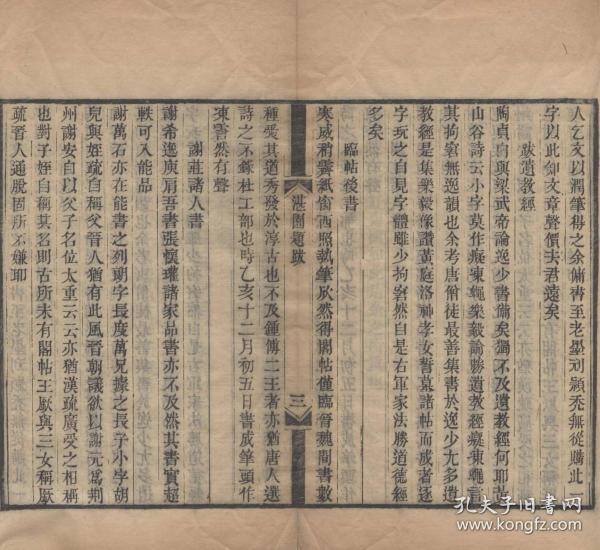 人乞文以潤筆得之余傭書至老墨刓潁禿無從購此
字以此知文章聲價夫君遠矣
跋遺敎經
陶貞白與梁武帝論逸少書備矣獨不及遺敎經何耶黃
山谷詩云小字莫作癡凍蠅樂毅論勝遺敎經癡凍蠅言
其拘窘無逸韻也余考唐僧徒最善集書於逸少尤多遺
敎經是集樂毅像讚黃庭洛神孝女誓墓諸帖而成者逐
字玩之自見字體雖少拘窘然自是右軍家法勝道德經
多矣
臨帖後書
寒威稍霽紙窗西照執筆欣然得閣帖僅臨晉魏間書數
湛園題跋
三
種愛其道秀發於淳古也不及鍾傅二王者亦猶唐人選
詩之不錄杜工部也時乙亥十二月初五日書成筆頭作
凍雲然有聲
謝莊諸人書
謝希逸庾肩吾書張懷瓘諸家品書亦不及然其書實超
軼可入能品
謝萬石亦在能書之列朗字長度萬兄據之長子小字胡
兒與姪疏自稱父晉人猶有此風晉朝議欲以謝元爲荆
州謝安自以父子名位太重云云亦猶漢疏廣受之相稱
也對子姪自稱其名則古所未有閣帖王厥與三女稱厥
疏晉人通脫固所不嫌耶
孔夫子旧书网
www.kongfz.com